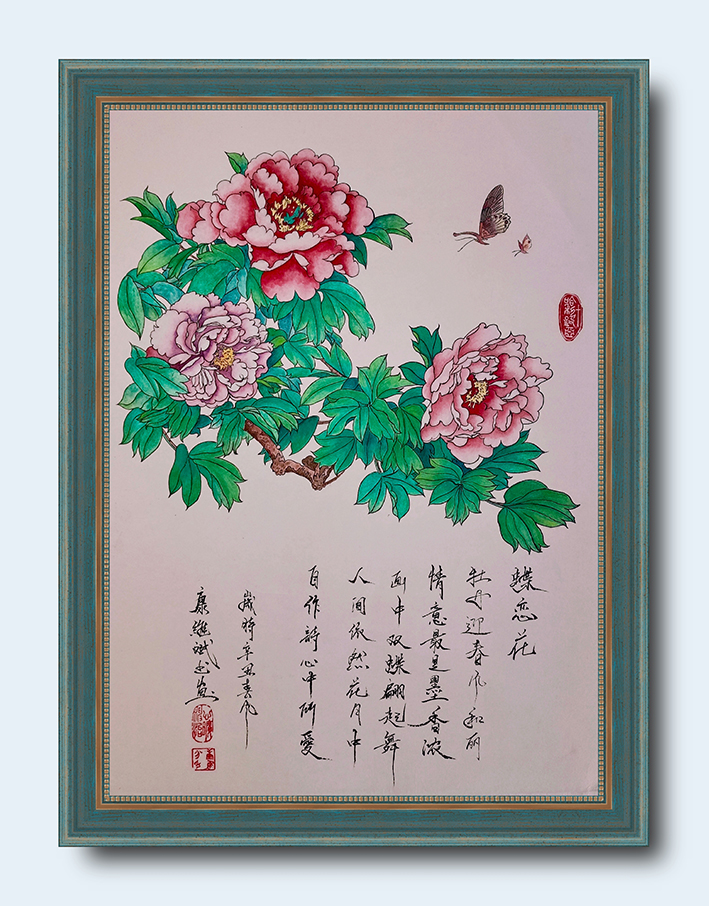 蝶恋花
牡丹迎春风和丽
情意最是墨香浓
画中双蝶翩起舞
人间依然花月中
自作诗心中所爱
岁将辛丑春风
康继斌书画